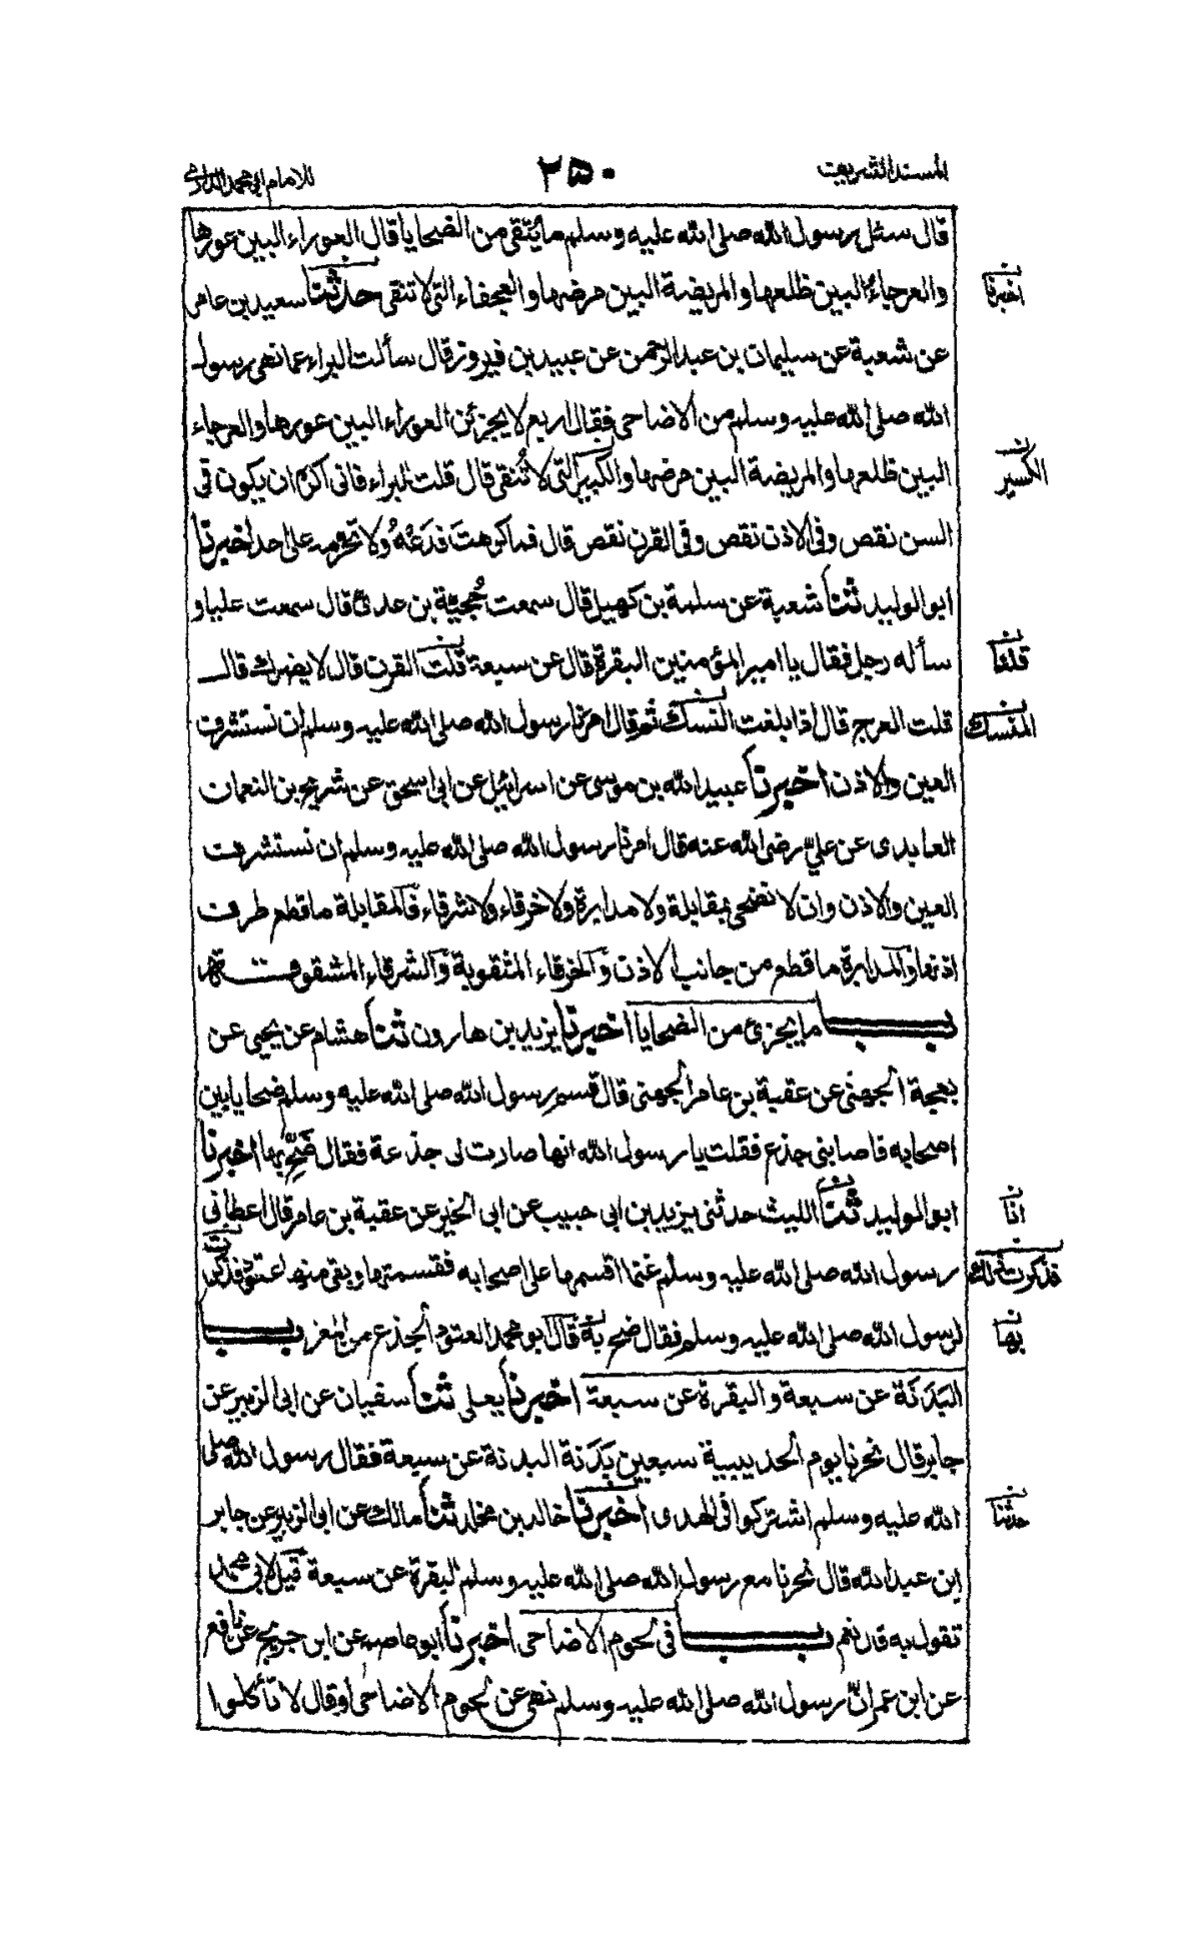 المسند الشريف
۲۵۰
للامام ابی محمد الدارمی
قال سئل رسول الله صلى الله عليه وسلم ما يتقى من الضحايا قال العوراء البين عورها
والعرجاء البين ظلعها والمريضة البين مرضها والعجفاء التى لا تنقى حدثنا سعيد بن عامر
اخبرنا
عن شعبة عن سليمان بن عبد الرحمن عن عبيد بن فيروز قال سألت البراء عما نهى رسول
الله صلى الله عليه وسلم من الاضاحى فقال اربع لا يجزئن العوراء البين عورها والعرجاء
البين ظلعها والمريضة البين مرضها والكبير التى لا تُنقى قال قلت للبراء فانى اكره ان يكون فى
الكسير
السن نقص وفى الاذن نقص وفى القرن نقص قال فما كرهتَ فدَعْهُ ولا تحرمه على احد اخبرنا
ابو الوليد ثنا شعبة عن سلمة بن كهيل قال سمعت حُجيّة بن عدى قال سمعت عليا و
سأله رجل فقال يا امير المؤمنين البقرة قال عن سبعة قلت القرن قال لا يضرك قال
قلنا
قلت العرج قال اذا بلغت النسك ثم قال امرنا رسول الله صلى الله عليه وسلم ان نستشرف
المنسك
العين والاذن اخبرنا عبيد الله بن موسى عن اسرائيل عن ابى اسحق عن شريح بن النعمان
العابدى عن علىّ رضى الله عنه قال امرنا رسول الله صلى الله عليه وسلم ان نستشرف
العين والاذن وان لا نضحى بمقابلة ولا مدابرة ولا خرقاء ولا شرقاء فالمقابلة ما قطع طرف
اذنها والمدابرة ما قطع من جانب الاذن والخرقاء المثقوبة والشرقاء المشقوقة
باب ما يجزئ من الضحايا اخبرنا يزيد بن هارون ثنا هشام عن يحيى عن
بعجة الجهنى عن عقبة بن عامر الجهنى قال قسم رسول الله صلى الله عليه وسلم ضحايا بين
اصحابه فاصابنى جذع فقلت يا رسول الله انها صارت لى جذعة فقال ضَحِّ بها اخبرنا
ابو الوليد ثنا الليث حدثنى يزيد بن ابى حبيب عن ابى الخير عن عقبة بن عامر قال اعطانى
انا
رسول الله صلى الله عليه وسلم غنما اقسمها على اصحابه فقسمتها وبقى منها عتود فذكرت
فذكرت ذلك
لرسول الله صلى الله عليه وسلم فقال ضح به قال ابو محمد العتود الجذع من المعز باب
بها
البَدَنَة عن سبعة والبقرة عن سبعة اخبرنا يعلى ثنا سفيان عن ابى الزبير عن
جابر قال نحرنا يوم الحديبية سبعين بَدَنة البدنة عن سبعة فقال رسول الله صلى
الله عليه وسلم اشتركوا فى الهدى اخبرنا خالد بن مخلد ثنا مالك عن ابى الزبير عن جابر
حدثنا
ابن عبد الله قال نحرنا مع رسول الله صلى الله عليه وسلم البقرة عن سبعة قيل لابى محمد
تقول به قال نعم باب فى لحوم الاضاحى اخبرنا ابو عاصم عن ابن جريج عن نافع
عن ابن عمر انّ رسول الله صلى الله عليه وسلم نهى عن لحوم الاضاحى او قال لا تأكلوا